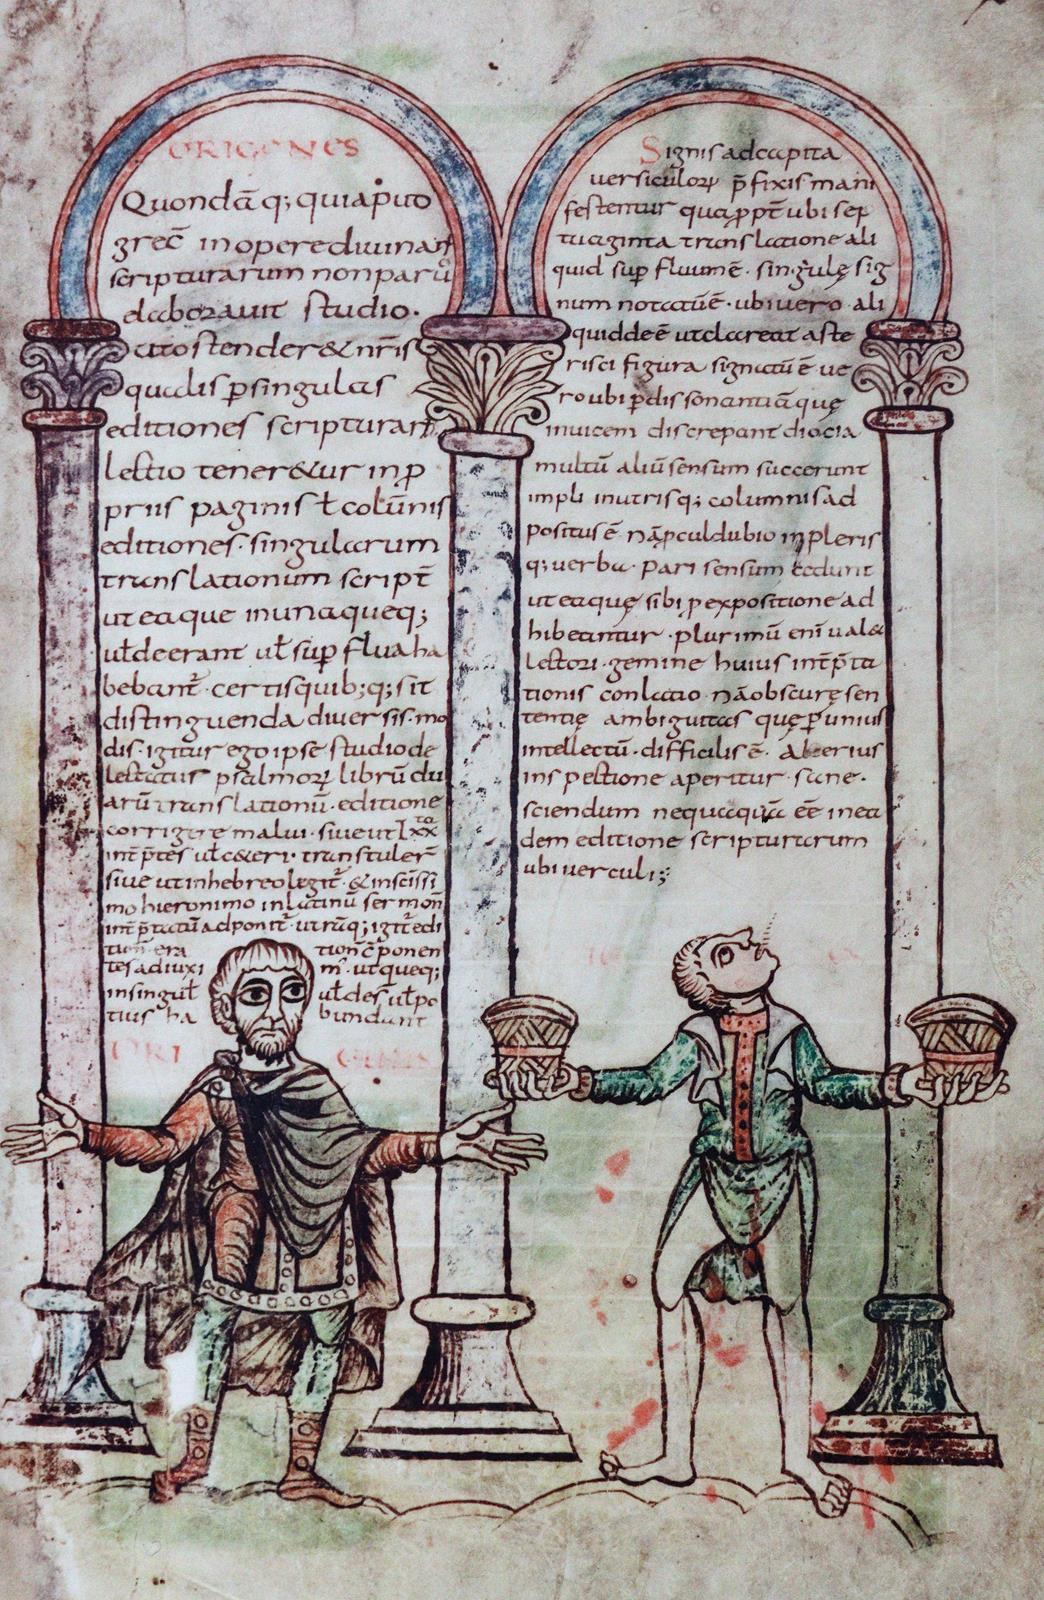 ORIGENES
Quondā q; quia puto
grec̄ in opere divinar̄
scripturarum non parū
elaboravit studio.
ut ostender& nr̄is
qualis p singulas
editiones scripturar̄
lectio tener&ur in p
priis paginis ł colūnis
editiones· singularum
translationum script̄
ut eaque in unaqueq;
uł deerant uł sup flua ha
bebant̄· certis quib;q; sit
distinguenda diversis· mo
dis· igitur ego ipse studio de
lectatus psalmoꝝ librū du
arū translationū· editione
corrigere malui· sive ut LXX
int̄p̄tes uł c&eri· transtuler̄
sive ut in hebreo legit̄· & in scissi
mo hieronimo in latinū sermon̄
int̄p̄tatū adponit̄· utrūq; igit̄ edi
tion̄ era tion̄ c̄ponen
tes adiuxi m̄· ut queq;
in singuł uł des uł po
tius ha bundant
ORI GENES
Signis ad capita
versiculoꝝ p̄fixis mani
festentur qua ꝓpt̄ ubi sep
tuaginta translatione ali
quid sup fluum ē· singulę sig
num notatū ē· ubi vero· ali
quid de ē ut clareat aste
risci figura signatū ē ve
ro ubi p dissonantiā quę
invicem discrepant diocia
multū aliū sensum succerunt
impli in utrisq; columnis ad
positus ē nā ꝓcul dubio in pleris
q; verba· pari sensum cedunt
ut eaquę sibi ꝓ expositione ad
hibeantur· plurimū eni val&
lectori· gemine huius int̄p̄ta
tionis conlatio nā obscurę sen
tentię ambiguitas quę p unius
intellectū· difficilis ē· alterius
inspectione aperitur· sane·
sciendum nequaquā ēē in ea
dem editione scripturarum
ubi verculi;